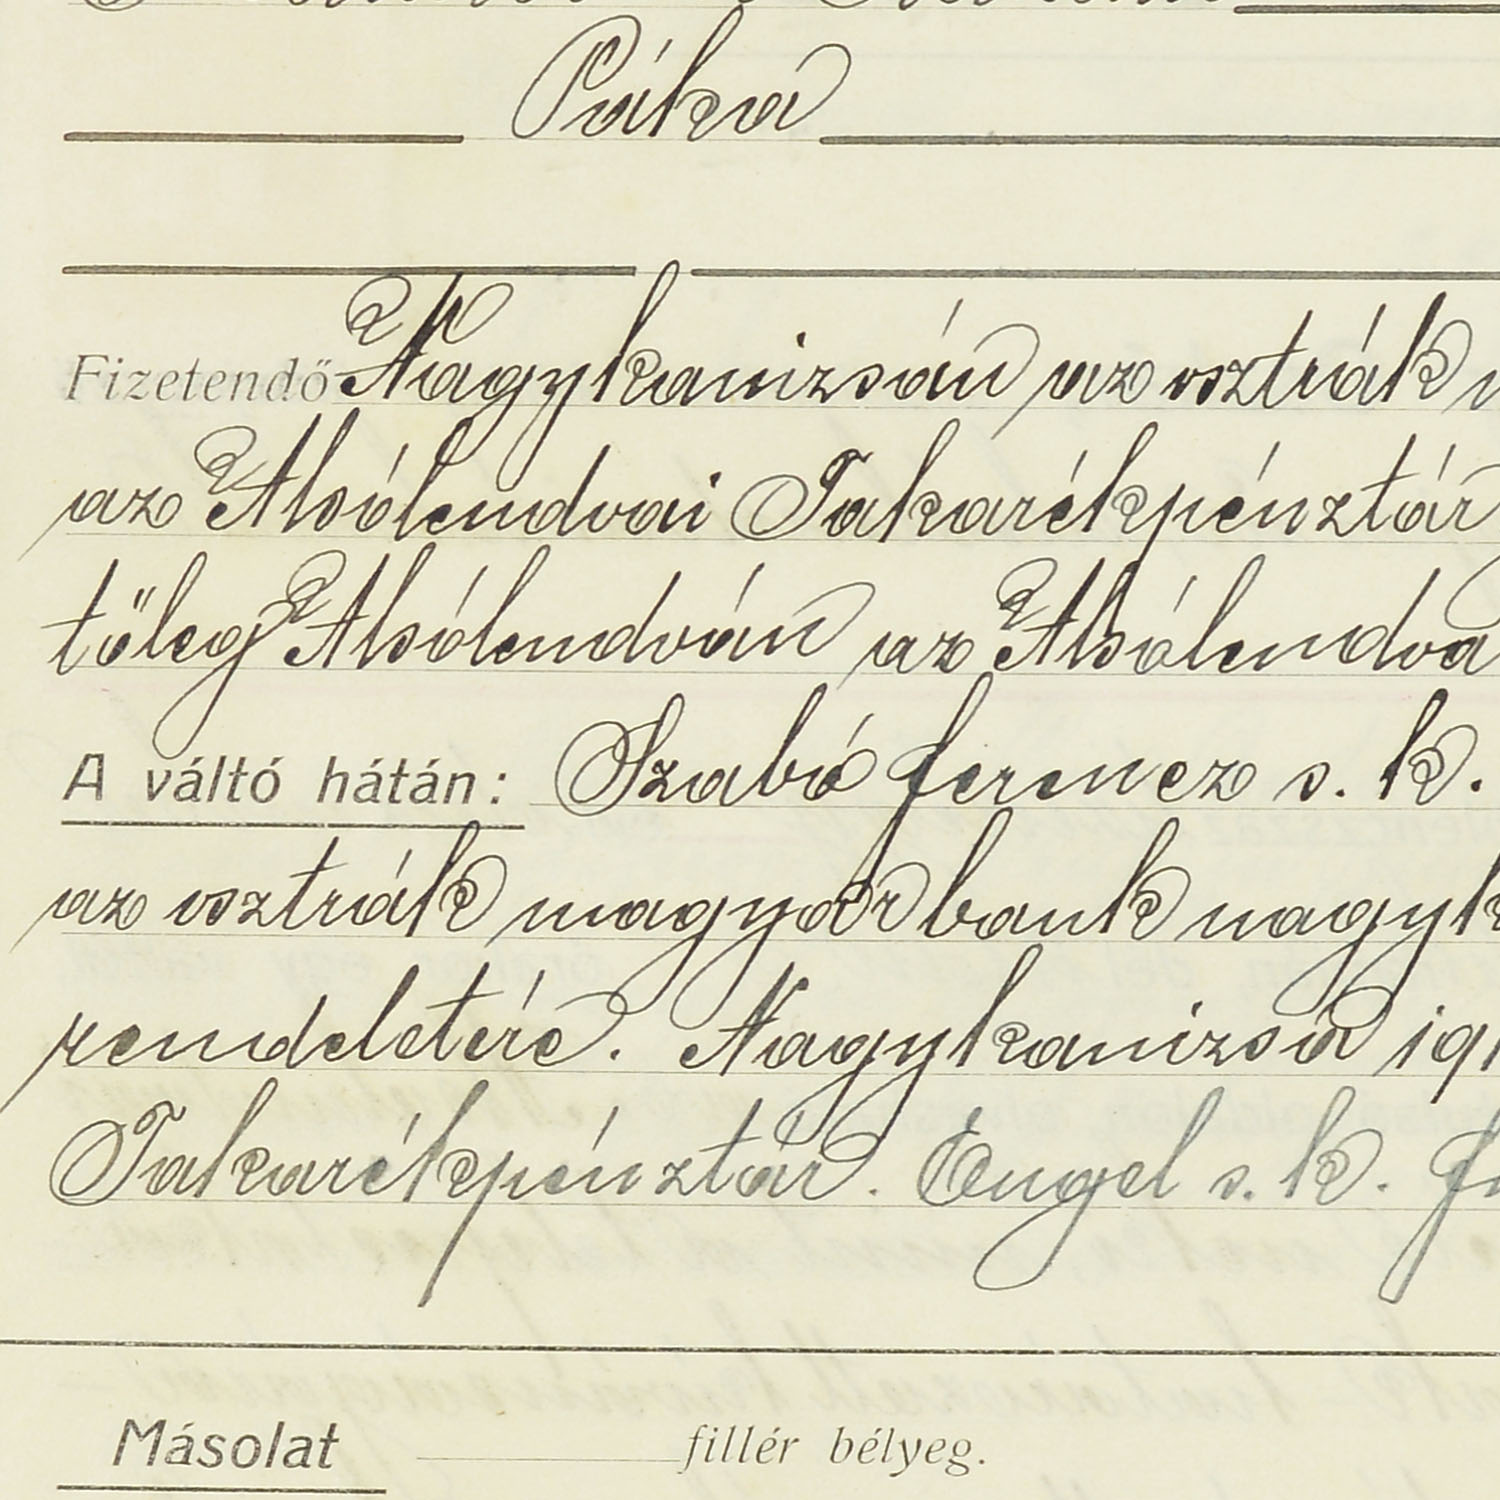 Páka
Fizetendő Nagykanizsán az osztrák
az Alsólendvai Takarékpénztár
tőleg Alsólendván az Alsólendva
A váltó hátán: Szabó ferencz s. k.
az osztrák magyar bank nagyk
rendeletére. Nagykanizsa 191
Takarékpénztár. Engel s. k.
Másolat fillér bélyeg.